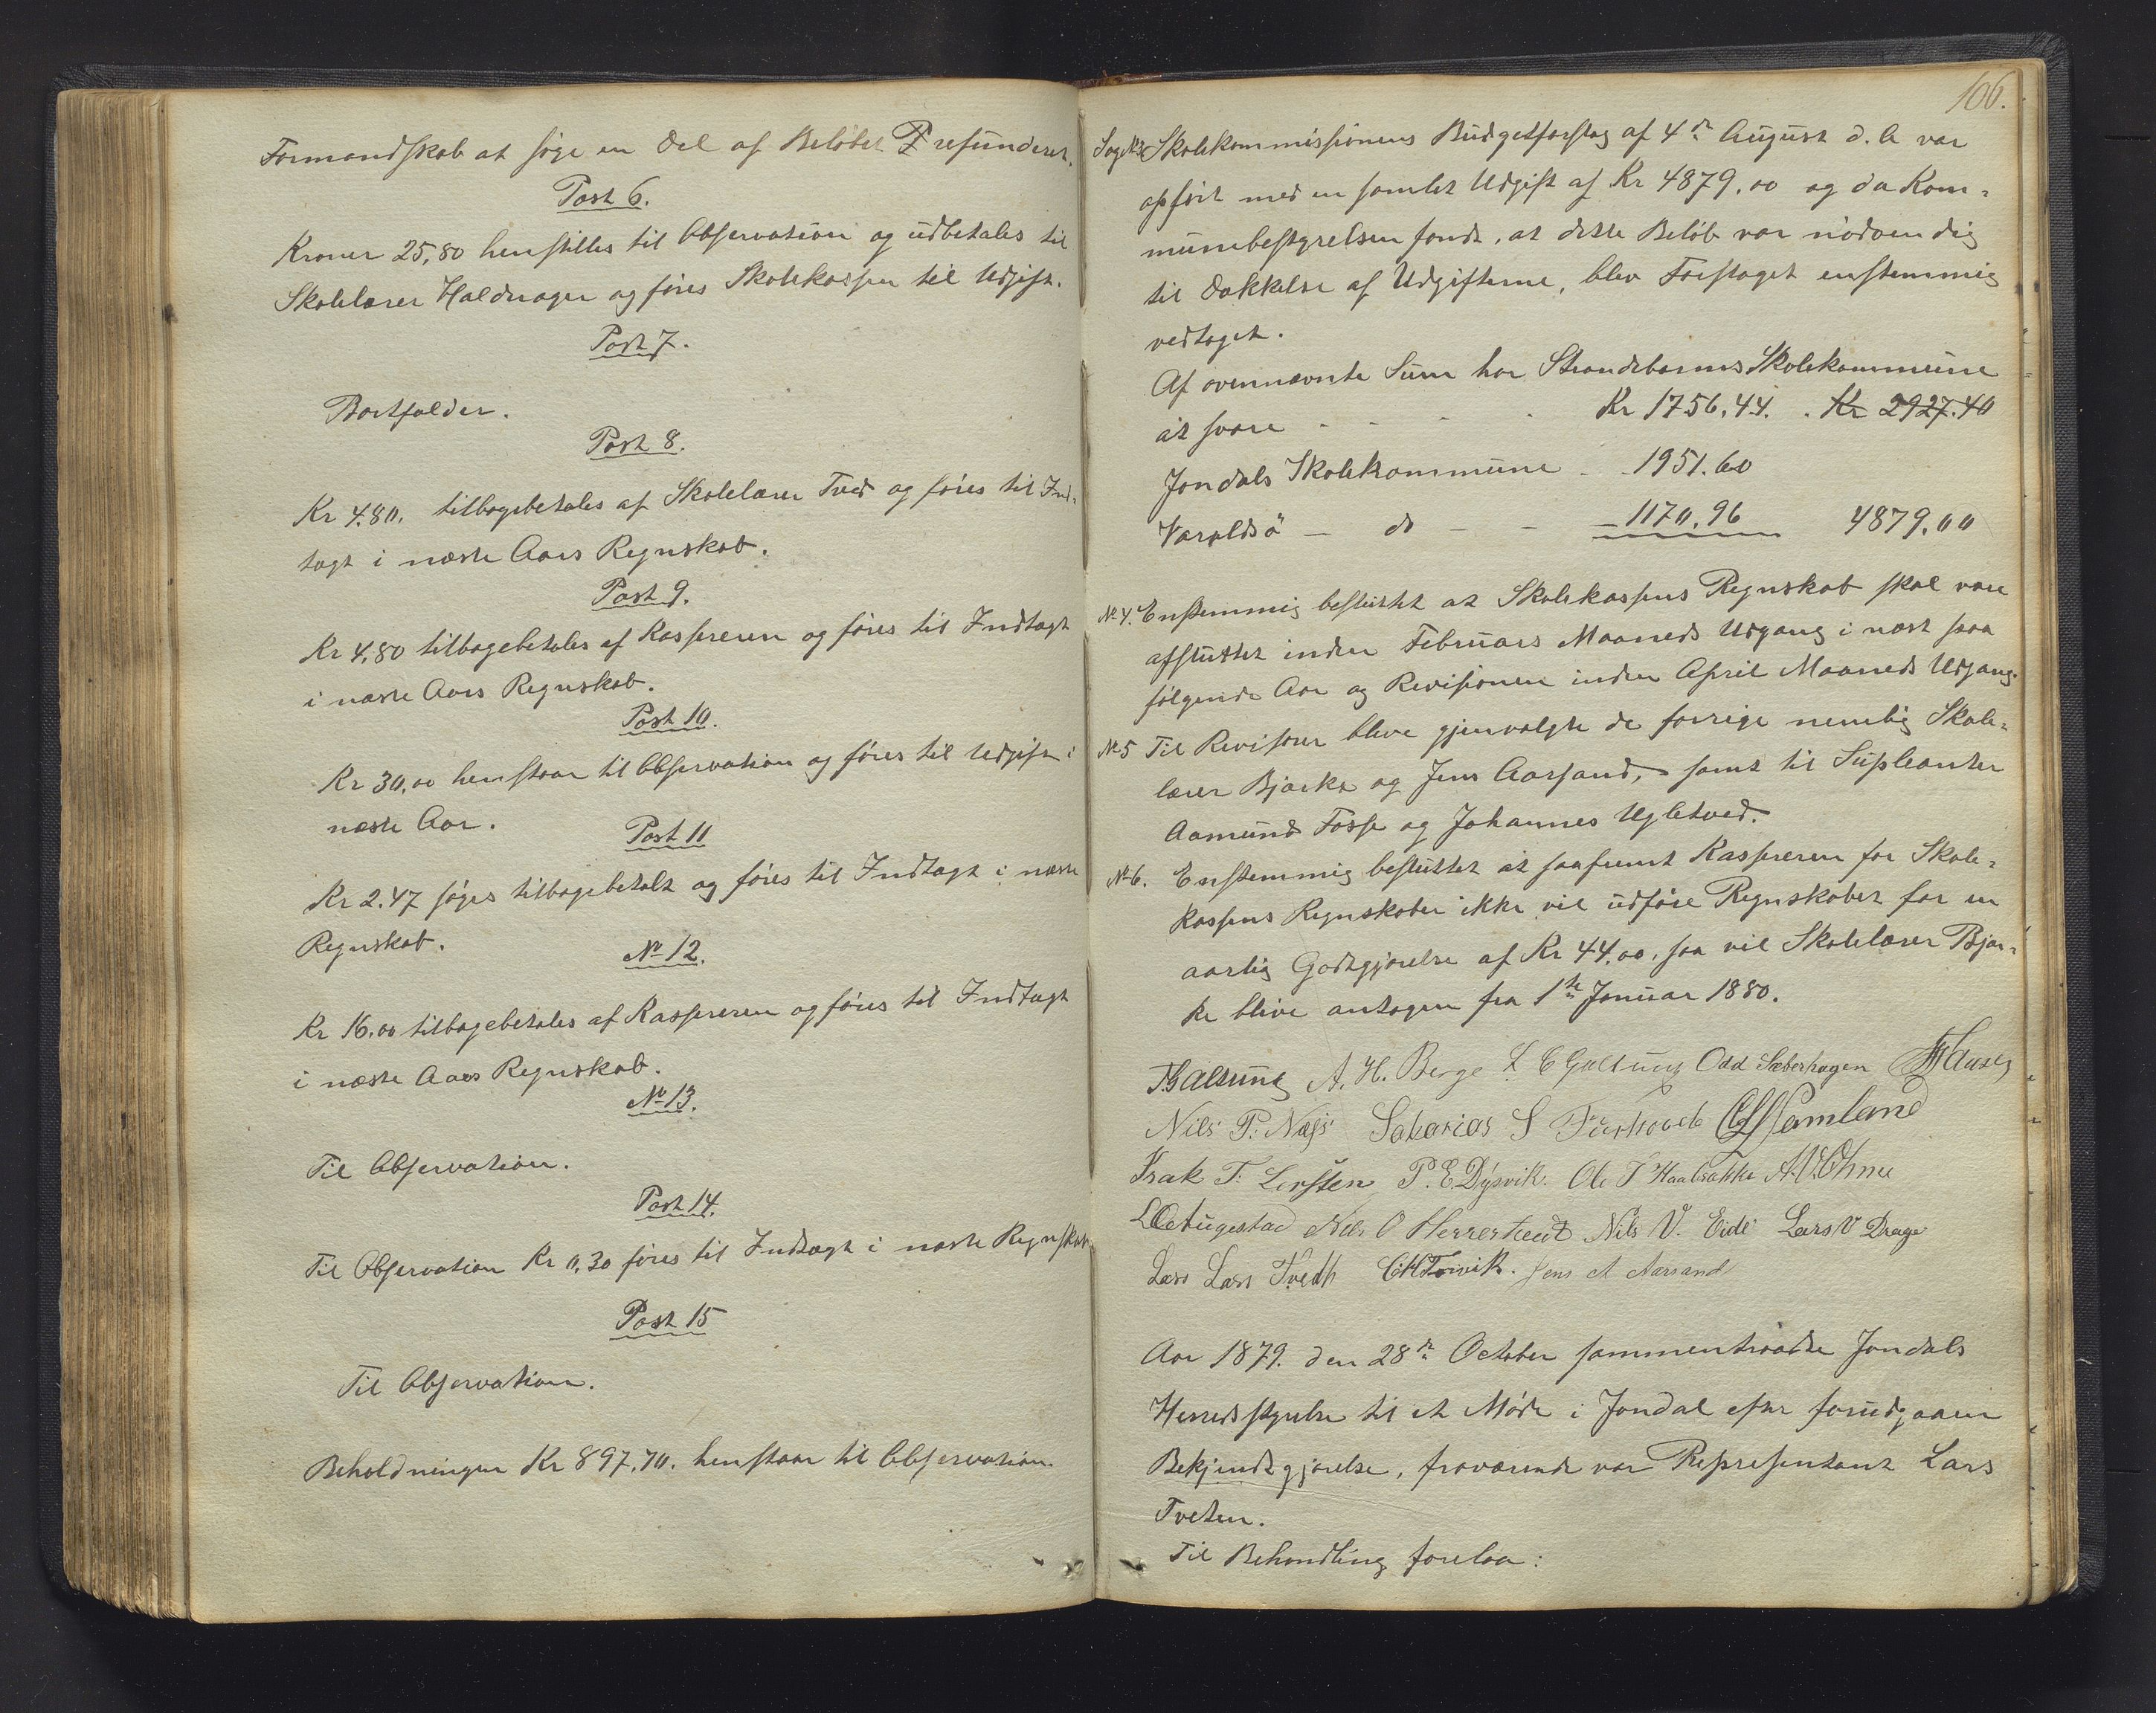 Formandskab at søge en Del af Beløbet refunderet.
Post 6.
Kroner 25,80 henstilles til Observation og udbetales til
Skolelærer Haldnager og føres Skolekassen til Udgift.
Post 7.
Bortfalder.
Post 8.
Kr 4.80. tilbagebetales af Skolelærer Tved og føres til Ind-
tægt i næste Aars Regnskab.
Post 9.
Kr 4,80 tilbagebetales af Kassereren og føres til Indtægt
i næste Aars Regnskab.
Post 10.
Kr 30,00 henstaar til Observation og føres til Udgift i
næste Aar.
Post 11
Kr 2.47 søges tilbagebetalt og føres til Indtægt i næste
Regnskab.
No 12.
Kr 16.00 tilbagebetales af Kassereren og føres til Indtægt
i næste Aars Regnskab.
No 13.
Til Observation.
Post 14.
Til Observation Kr 0,30 føres til Indtægt i næste Regnskab
Post 15
Til Observation.
Beholdningen Kr 897,70. henstaar til Observation.
106.
Sag No 3 Skolekommissionens Budgetforslag af 4de August d. A var
opført med en samlet Udgift af Kr 4879,00 og da Kom-
munebestyrelsen fandt, at dette Beløb var nødvendig
til Dækkelse af Udgifterne, blev Forslaget enstemmig
vedtaget.
Af ovennævnte Sum har Strandebarms Skolekommune
at svare - - - - Kr 1756,44. . Kr 2927.40
Jondals Skolekommune - - 1951.60
Varaldsø - do - - - 1170,96 4879,00
No 4. Enstemmig besluttet at Skolekassens Regnskab skal være
afsluttet inden Februars Maaneds Udgang i næst paa
følgende Aar og Revisionen inden April Maaneds Udgang.
No 5 Til Revisorer bleve gjenvalgte de forrige nemlig Skole-
lærer Bjørke og Jens Aarsand, samt til Supleanter
Aamund Fosse og Johannes Ugletved.
No 6. Enstemmig besluttet at saafremt Kassereren for Skole-
kassens Regnskaber ikke vil udføre Regnskabet for en
aarlig Godtgjørelse af Kr 44,00, saa vil Skolelærer Bjør-
ke blive antagen fra 1ste Januar 1880.
Galtung A. H. Berge L E Galtung Odd Sæberhagen
Nils P. Næss Sakarias S Samland
Isak T. P. E. Dysvik. Ole T
Nils O Nils V. Eide Lars V Drage
Lars Lars Tvedt Jens A Aarsand
Aar 1879. den 28de October sammentraadte Jondals
Herredsstyrelse til et Møde i Jondal efter forudgaaen
Bekjendtgjørelse, fraværende var Repræsentant Lars
Tveten.
Til Behandling forelaa: